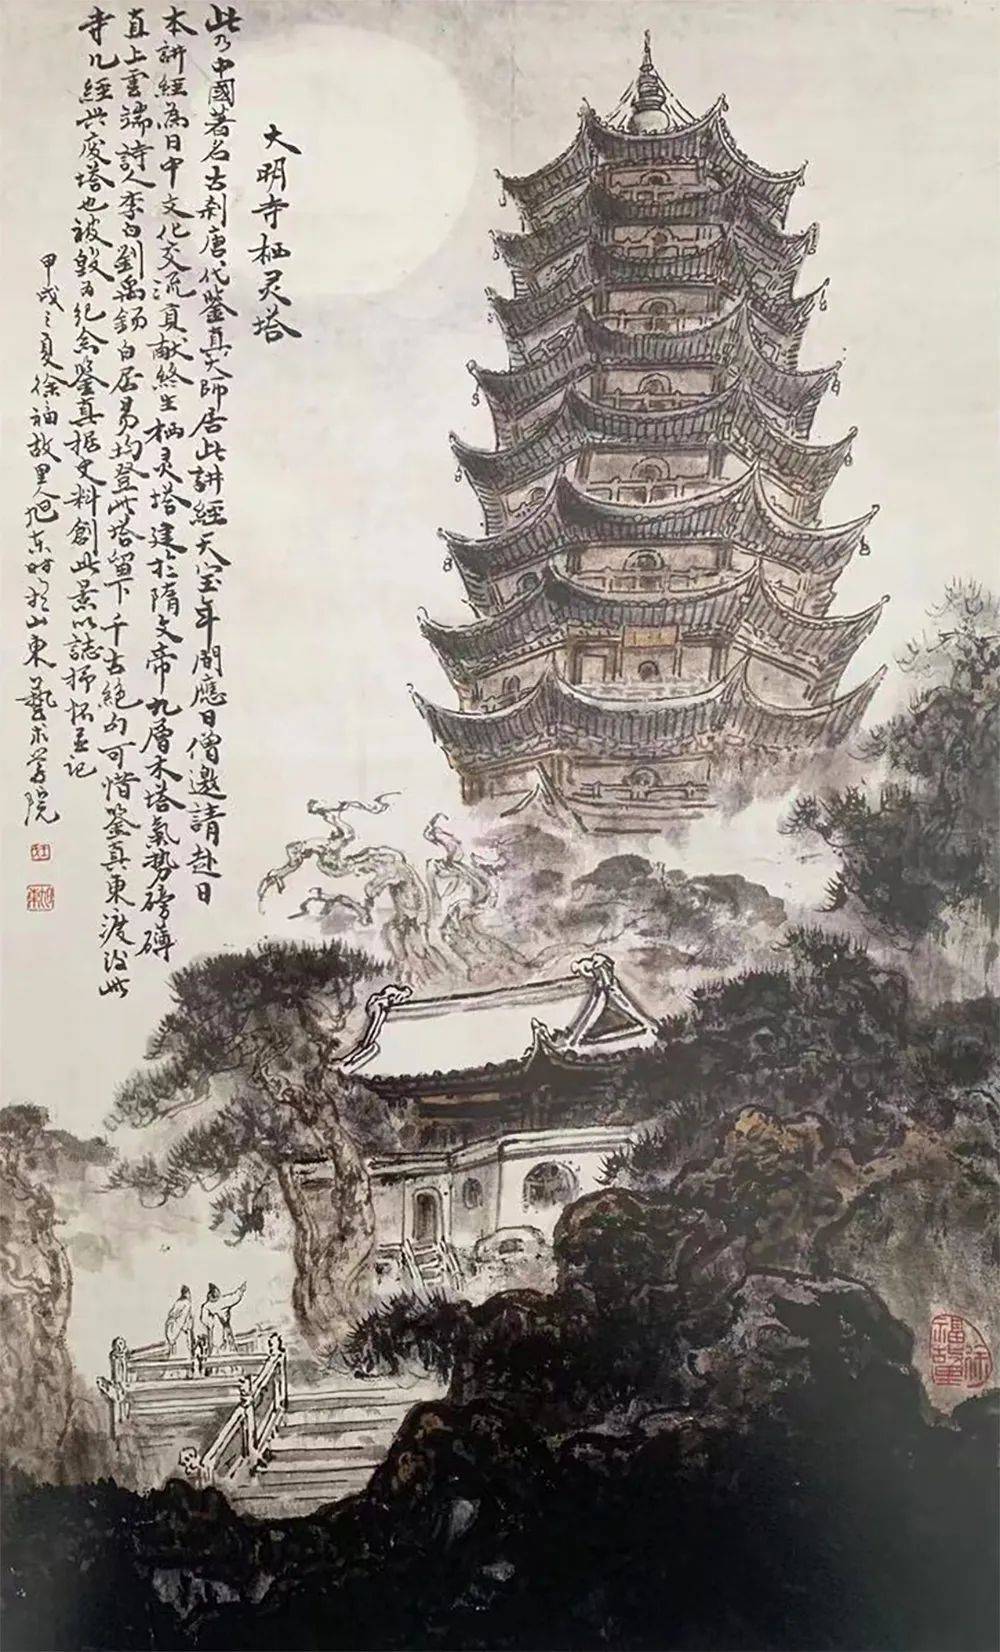 大明寺栖灵塔
此乃中國著名古刹唐代鉴真大師居此讲經天宝年間應日僧邀請赴日
本讲經為日中文化交流貢献終生栖灵塔建於隋文帝九層木塔氣势磅礴
直上雲端詩人李白劉禹錫白居易均登此塔留下千古絕句可惜鉴真東渡后此
寺几經兴废塔也被毁为紀念鑒真据史料創此景以誌抒怀并记
甲戌之夏徐福故里人旭东时於山東藝术学院
旭東
徐福故里